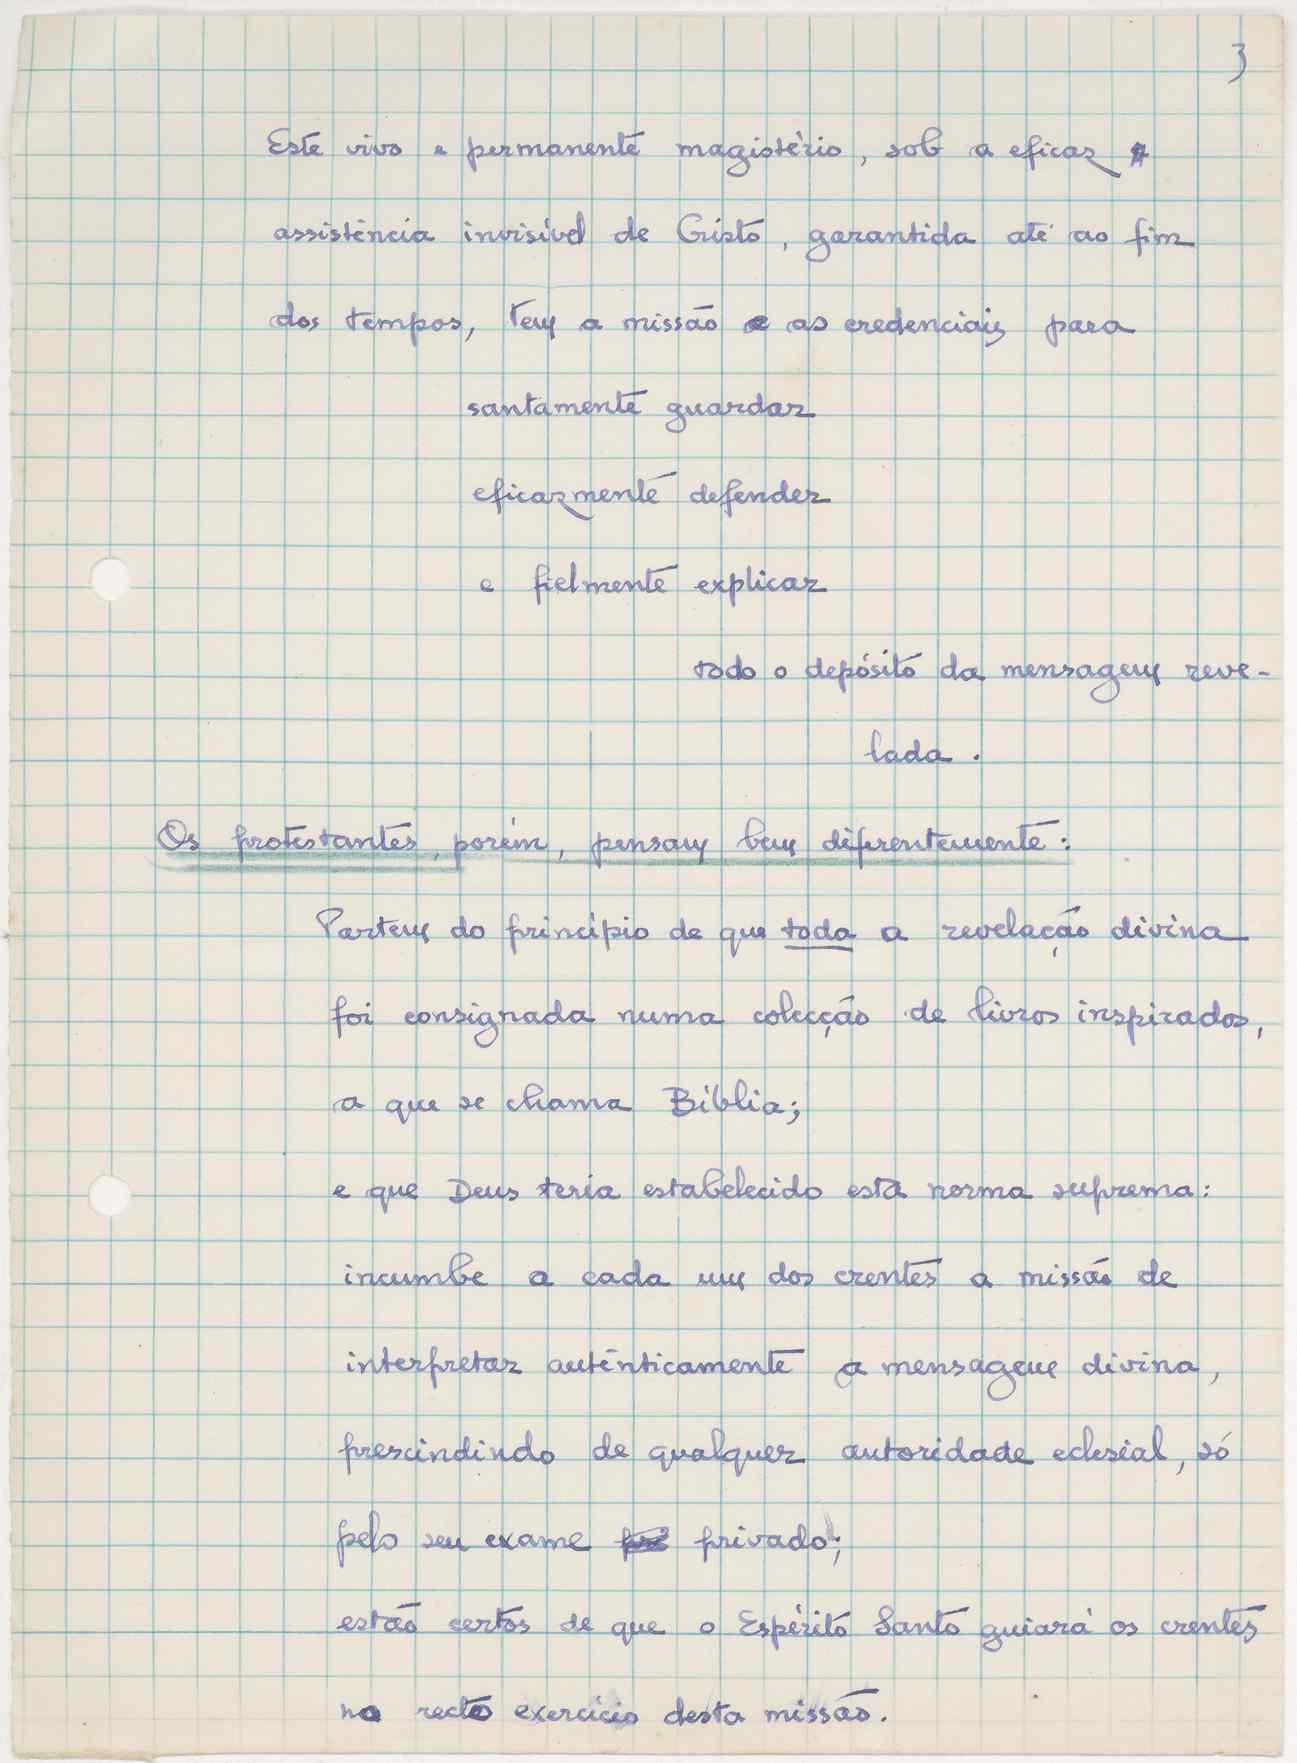 3
Este vivo e permanente magistério, sob a eficaz
assistência invisível de Cristo, garantida até ao fim
dos tempos, tem a missão e as credenciais para
santamente guardar
eficazmente defender
e fielmente explicar
todo o depósito da mensagem reve-
lada.
Os protestantes, porém, pensam bem diferentemente:
Partem do princípio de que toda a revelação divina
foi consignada numa colecção de livros inspirados,
a que se chama Bíblia;
e que Deus teria estabelecido esta norma suprema:
incumbe a cada um dos crentes a missão de
interpretar autênticamente a mensagem divina,
prescindindo de qualquer autoridade eclesial, só
pelo seu exame privado;
estão certos de que o Espírito Santo guiará os crentes
no recto exercício desta missão.